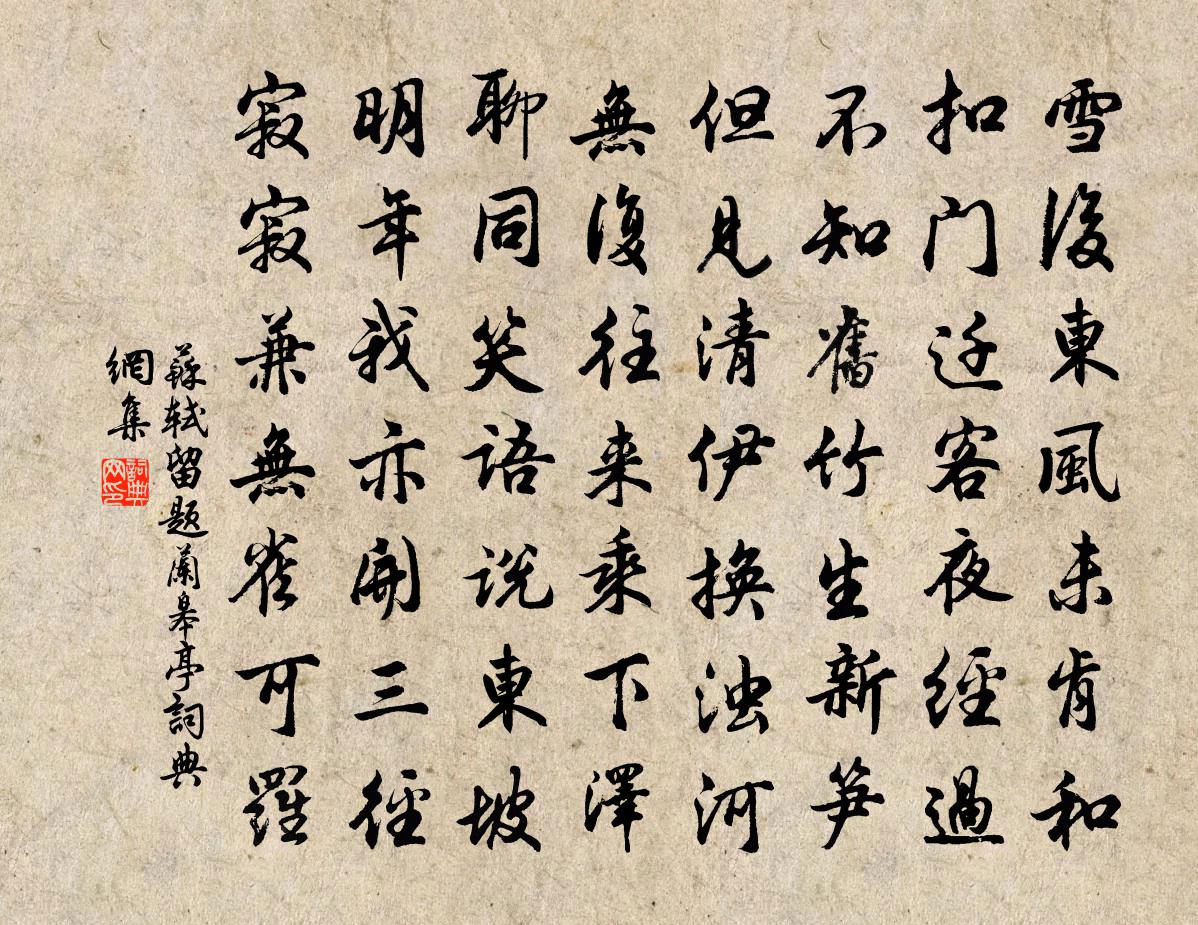 雪後東風未肯和
扣门迁客夜經過
不知舊竹生新笋
但見清伊換浊河
無復往来乘下澤
聊同笑语说東坡
明年我亦開三徑
寂寂兼無雀可羅
蘇軾留題蘭皋亭詞典
網集
詞典
网印